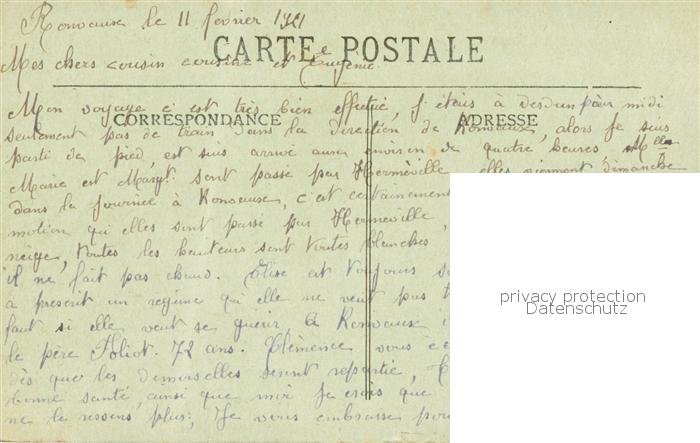 Ronvaux le 11 février 1921
CARTE POSTALE
Mes chers cousin cousine et Eugénie
Mon voyage c est très bien effectué, j étais à
midi
CORRESPONDANCE
ADRESSE
seulement pas de train dans la direction de Ronvaux, alors je suis
parti de pied, est suis arrivé aux environ de quatre heures Melles
Marie est Margt. sont passé par Hermeville elles viennent dimanche
dans la journée à Ronvaux, c'est certainement
motion qu'elles sont passé par Hermeville,
neige, toutes les hauteurs sont toutes blanches
il ne fait pas chaud. Élise est toujours
à présent un régime qu'elle ne veut pas
faut si elle veut se guérir. A Ronvaux
le père Joliot. 72 ans. Clémence vous
dès que les demoiselles seront repartie,
bonne santé, ainsi que moi je crois que
ne le ressens plus; Je vous embrasse pour
privacy protection
Datenschutz